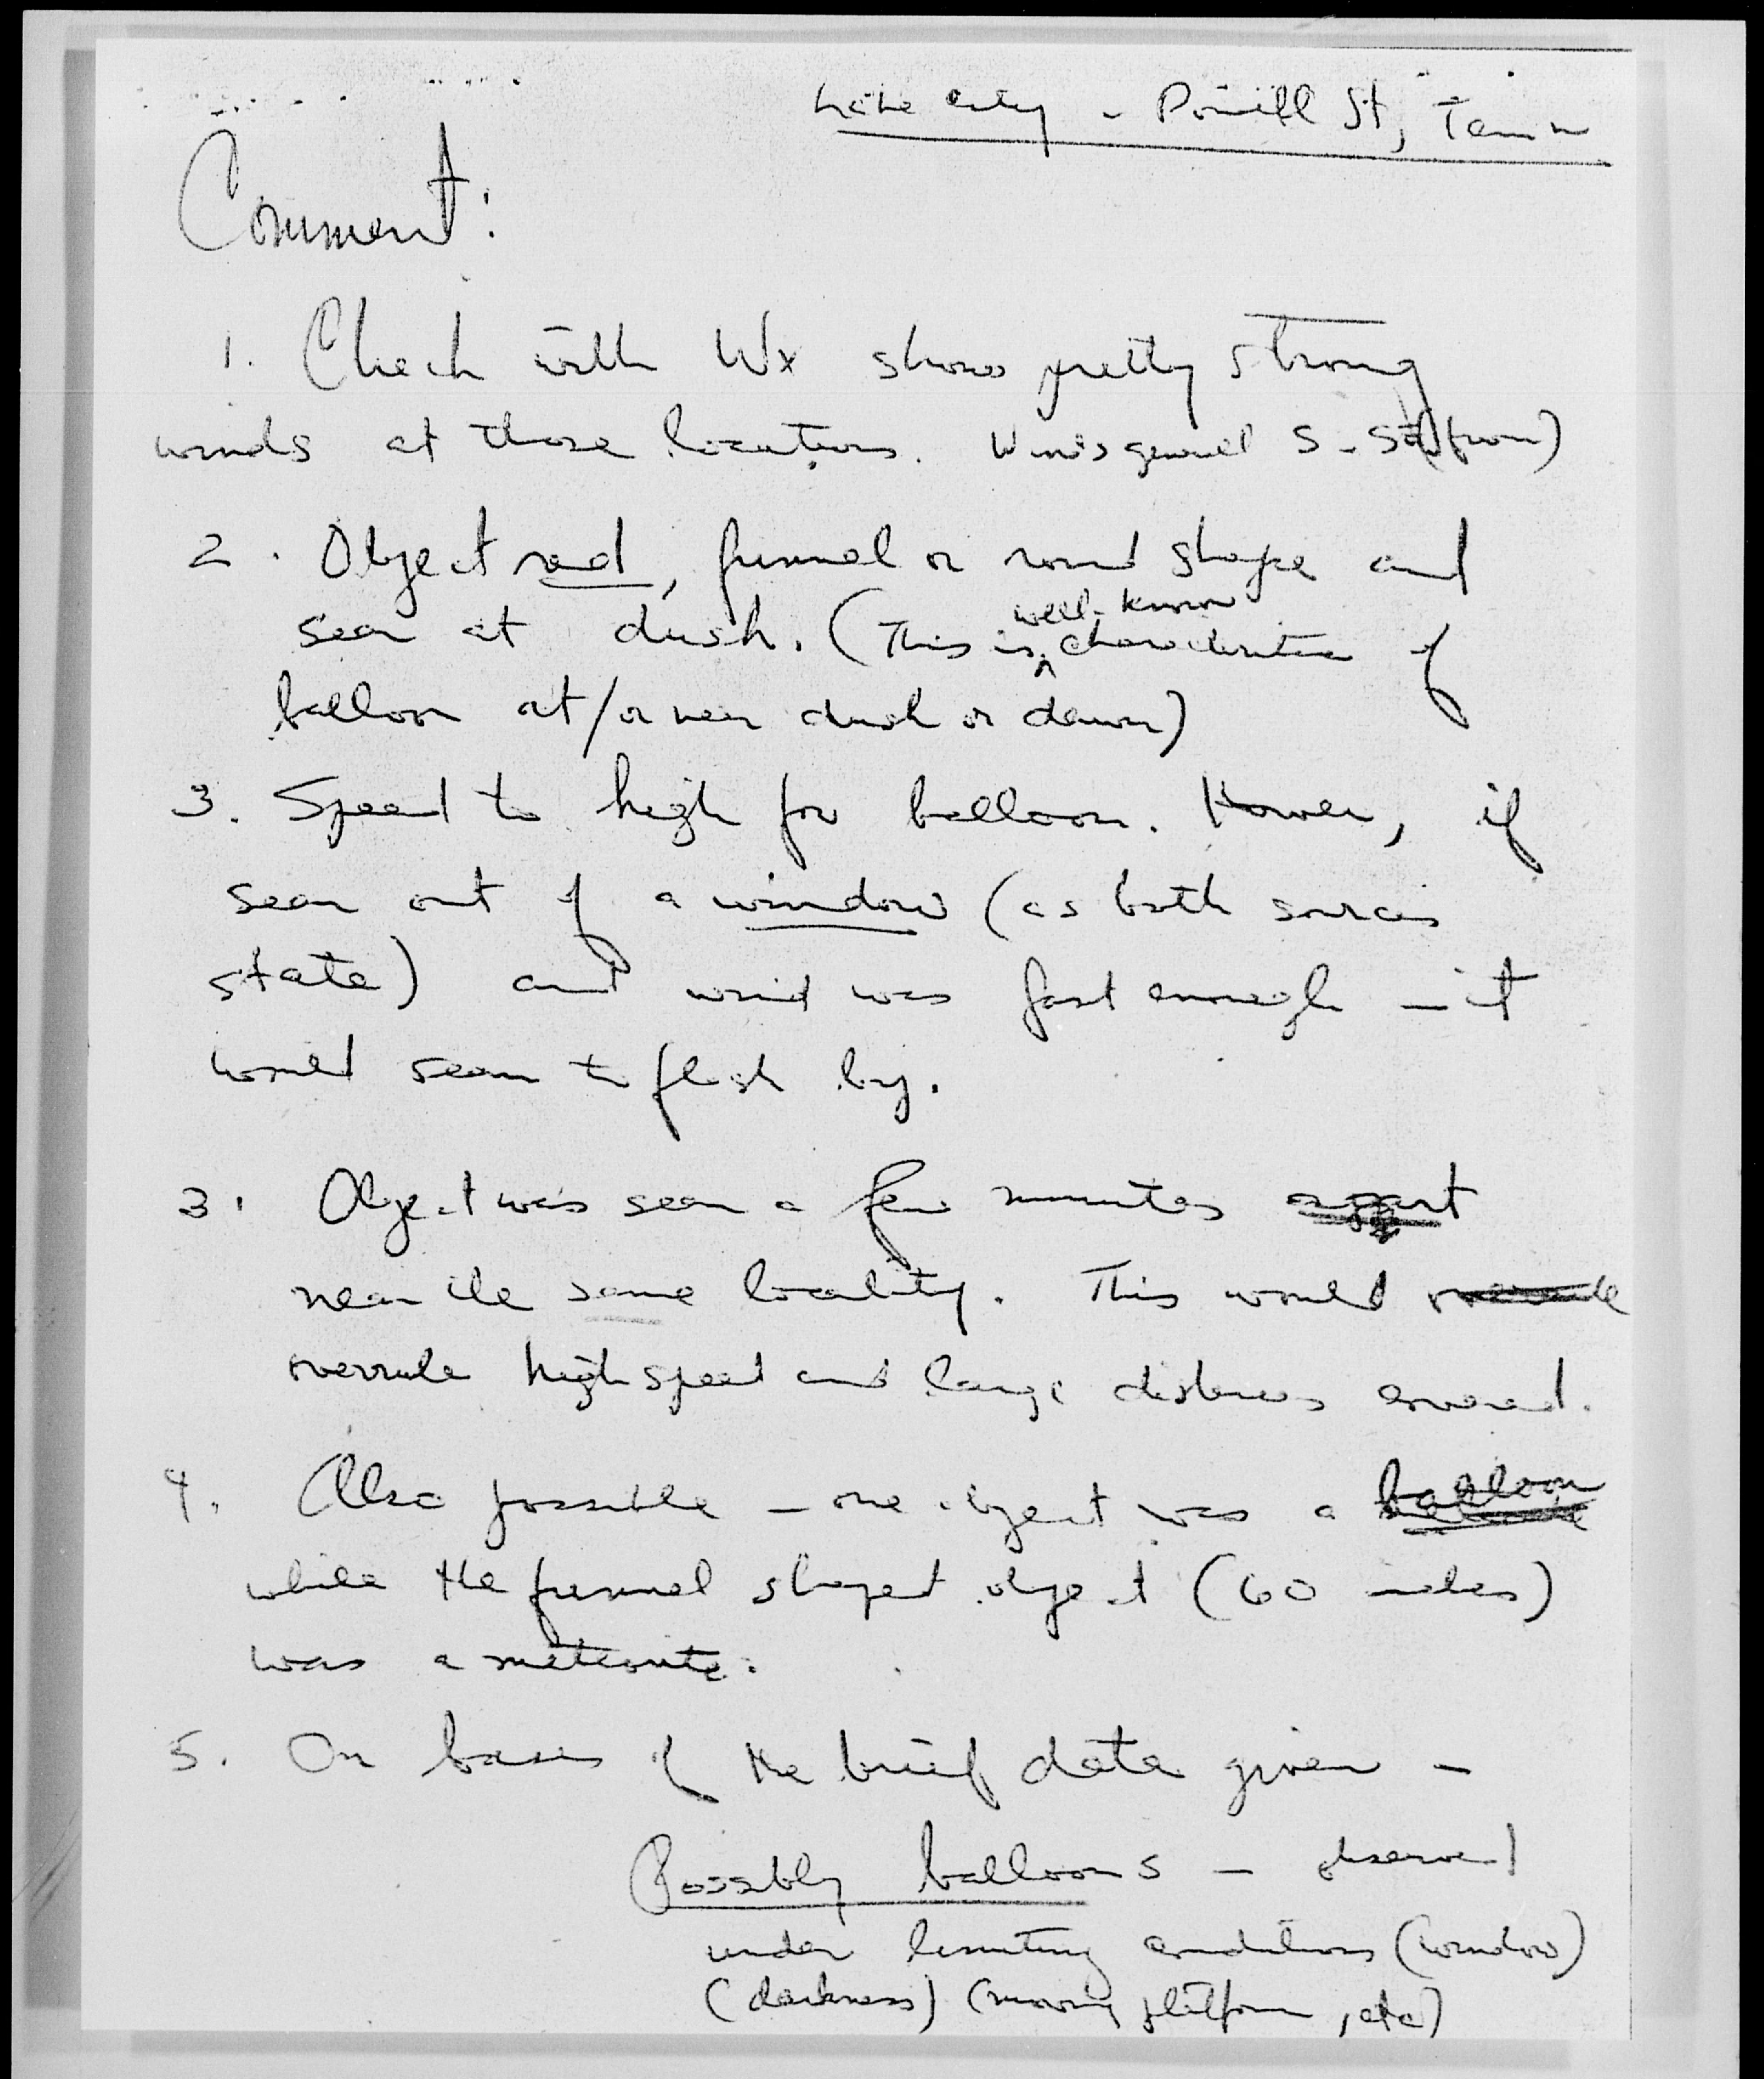 Lake City - Powell St, Tenn
Comment:
1. Check with Wx shows pretty strong
winds at those locations. Winds general S - SW (from)
2. Object red, funnel or round shape and
seen at dusk. (This is well-known characteristic of
balloon at/or near dusk or dawn)
3. Speed to high for balloon. However, if
seen out of a window (as both sources
state) and wind was fast enough - it
would seem to flash by.
3. Object was seen a few minutes apart
near the same locality. This would
overrule high speed and large distances covered.
4. Also possible - one object was a balloon
while the funnel shaped object (60 miles)
was a meteorite.
5. On basis of the brief data given -
Possbly balloons - observed
under limiting conditions (window)
(darkness) (moving platform, etc)